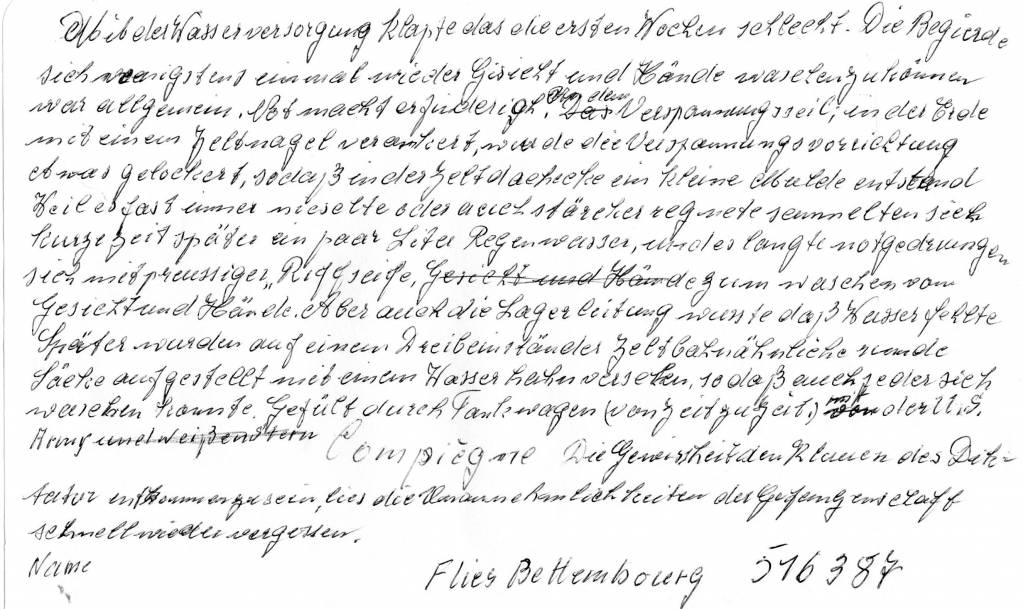 Mit der Wasserversorgung klapte das die ersten Wochen schlecht. Die Begierde
sich wenigstens einmal wieder Gesicht und Hände waschen zu können
war allgemein. Not macht erfinderisch. An dem Das Verspannungsseil, in der Erde
mit einem Zeltnagel verankert, wurde die Verspannungsvorrichtung
etwas gelockert, sodaß in der Zeltdachecke ein kleine Mulde entstand
Weil es fast immer nieselte oder auch stärcher regnete sammelten sich
kurze Zeit später ein paar Liter Regenwasser, und es langte notgedrungen
sich mit preussiger „Riffseife, Gesicht und Hände zum waschen von
Gesicht und Hände. Aber auch die Lagerleitung wusste daß Wasser fehlte
Später wurden auf einem Dreibeinständer Zeltbahnähnliche runde
Säcke aufgestellt mit einem Wasserhahn versehen, so daß auch jeder sich
waschen konnte. Gefült durch Tankwagen (von Zeit zu Zeit) mit von der U.S.
Army und weißenstern Compiègne Die Gewissheit den Klauen des Dik-
tator entkommen zu sein, lies die Unannehmlichkeiten der Gefangenschaff
schnell wieder vergessen.
Name
Flies Bettembourg 516387